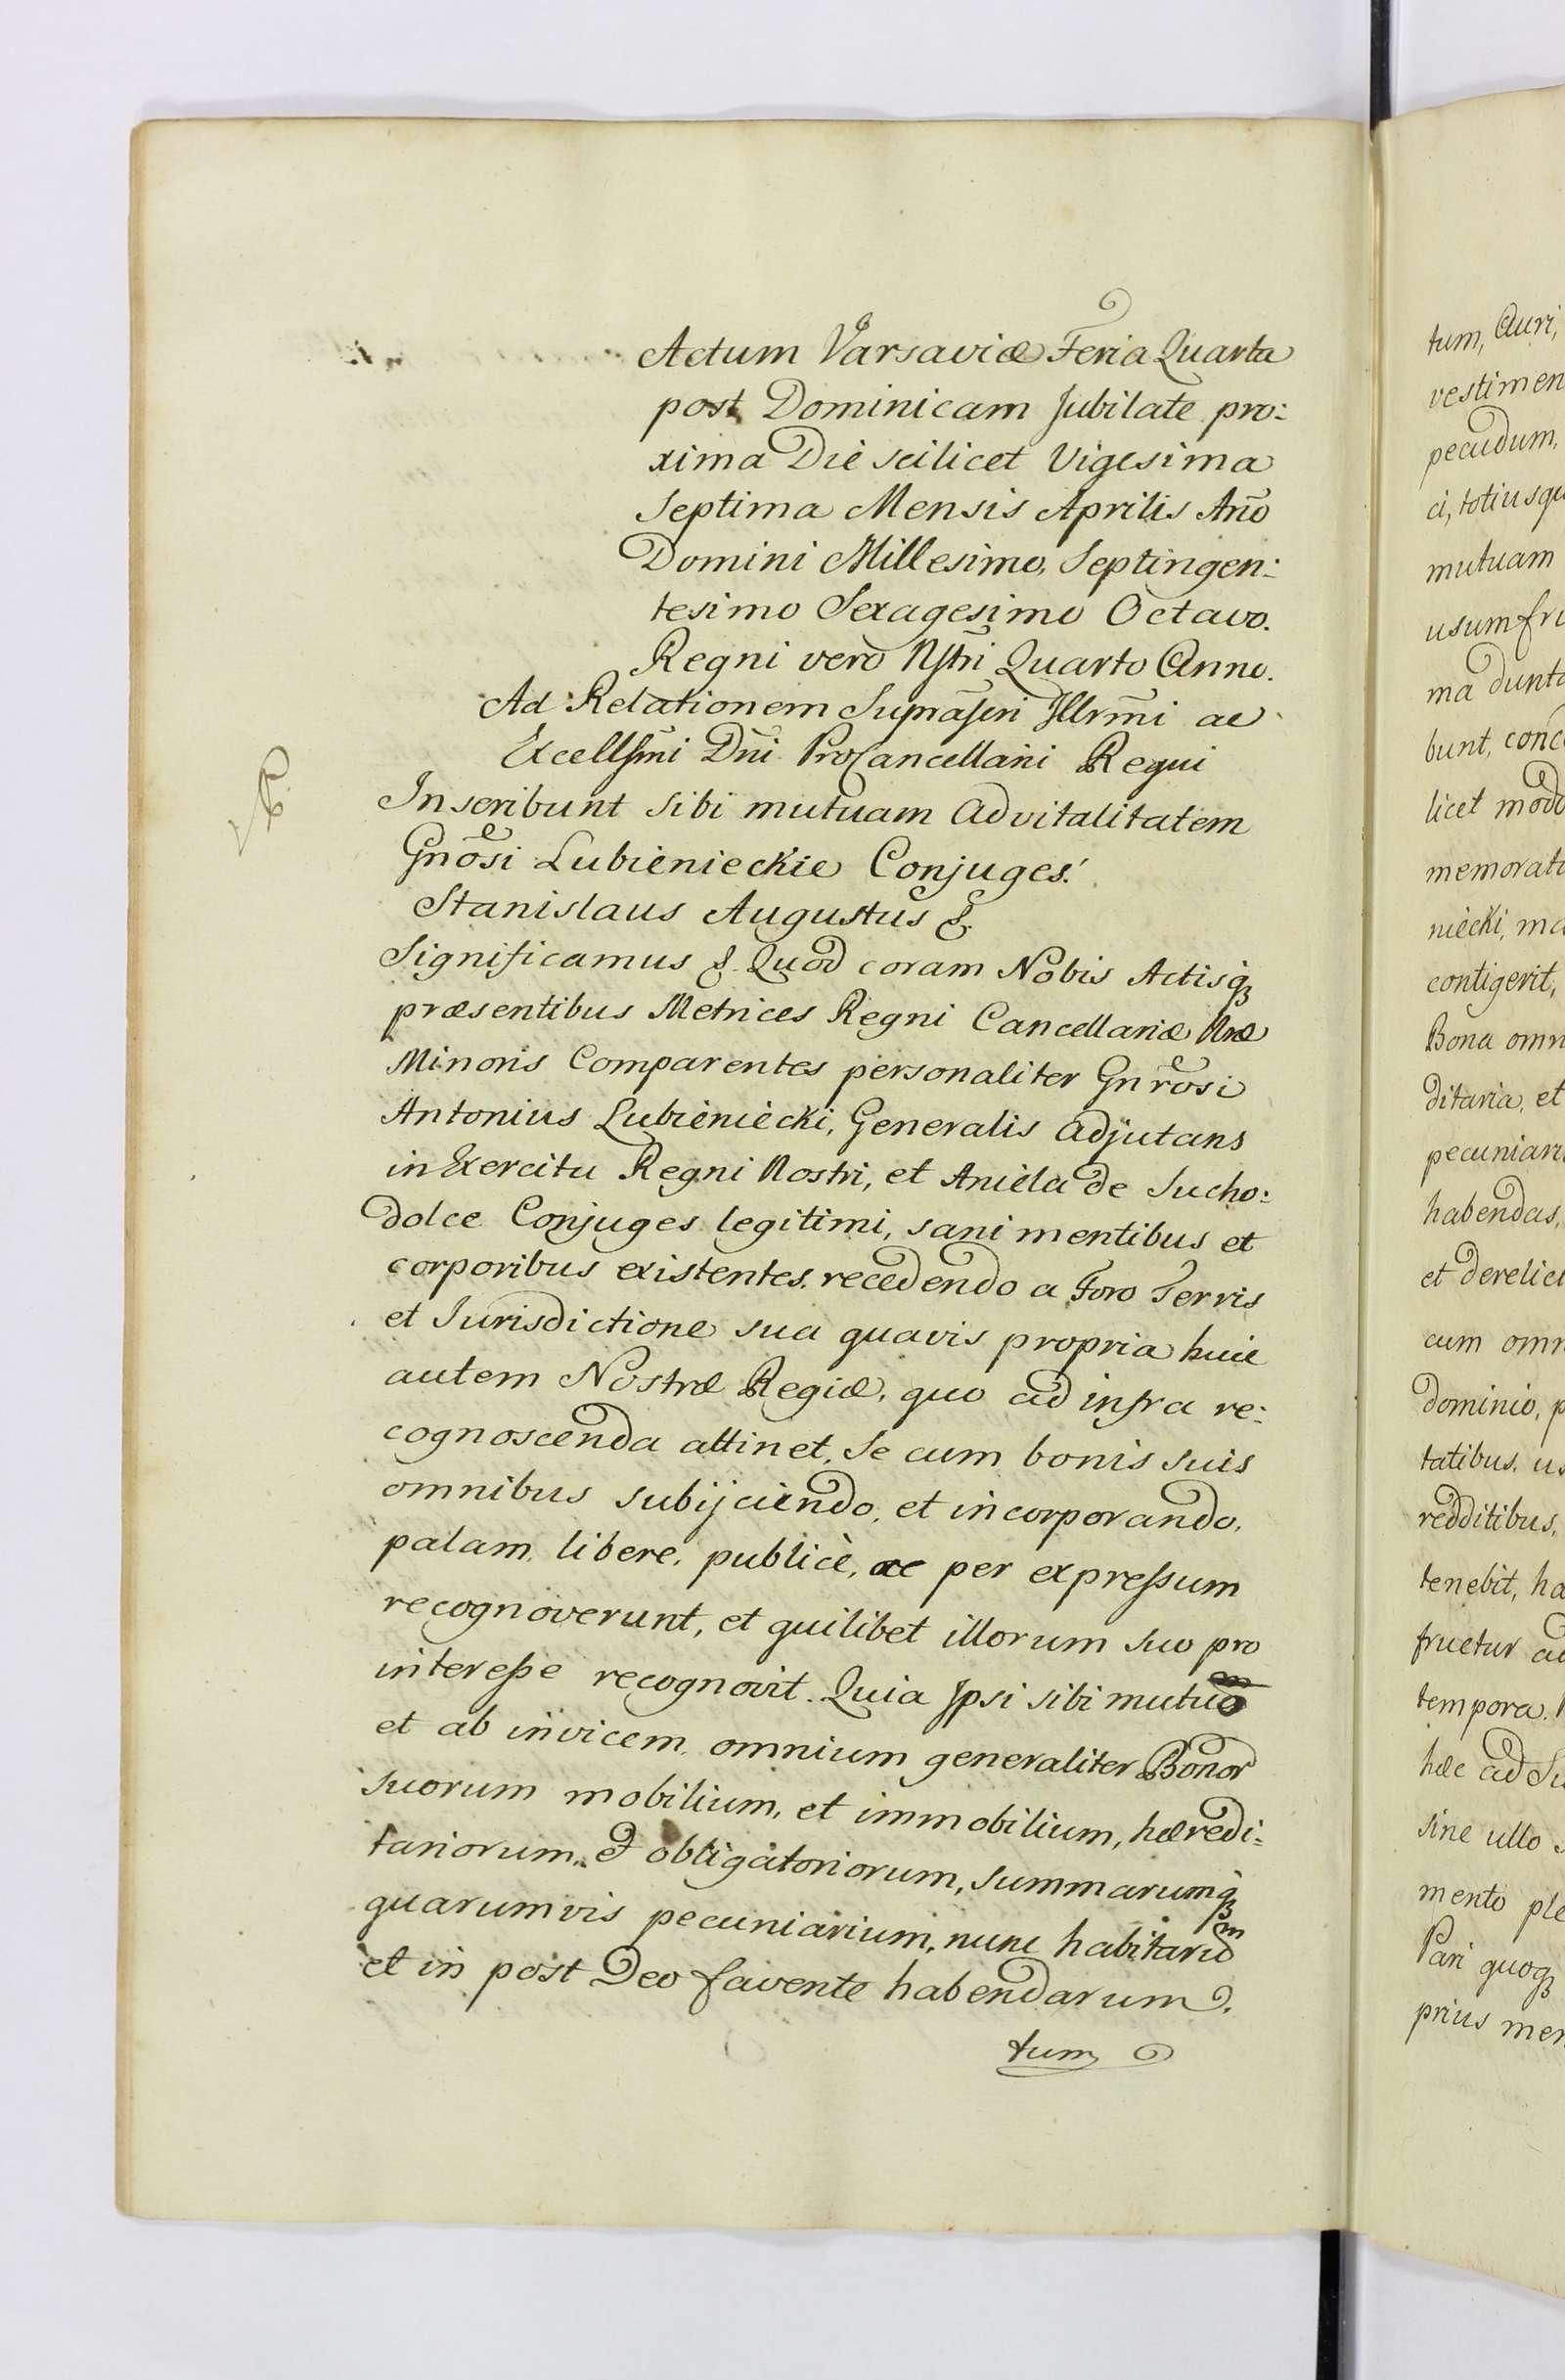 Actum Varsaviæ Feria Quarta
post Dominicam Jubilate pro:
xima Die scilicet Vigesima
Septima Mensis Aprilis Año
Domini Millesimo, Septingen:
tesimo Sexagesimo Octavo.
Regni vero Nstri Quarto Anno.
Ad Relationem Suprascri Illrmi ac
Excellsmi Dni ProCancellarii Regni
Inscribunt sibi mutuam Advitalitatem
Gnosi Lubienieckie Conjuges.
Stanislaus Augustus &.
Significamus &. Quod coram Nobis Actisq
præsentibus Metrices Regni Cancellariæ Nræ
Minoris Comparentes personaliter Gnrosi
Antonius Lubieniecki, Generalis Adjutans
in Exercitu Regni Nostri, et Aniela de Sucho:
dolce Conjuges legitimi, sani mentibus et
corporibus existentes, recedendo a Foro Terris
et Jurisdictione sua quavis propria huic
autem Nostræ Regiæ, quo ad infra re:
cognoscenda attinet, Se cum bonis suis
omnibus subijciendo, et incorporando,
palam, libere, publicè, ac per expressum
recognoverunt, et quilibet illorum suo pro
interesse recognovit. Quia Ipsi sibi mutuo
et ab invicem, omnium generaliter Bonor
suorum mobilium, et immobilium, hæredi:
tariorum, et obligatoriorum, summarumq
quarumvis pecuniarium, nunc habitarum
et in post Deo favente habendarum.
tum
tum, Auri,
vestimen
pecudum,
ci, totiusqu
mutuam
usumfru
ma dunta
bunt, conc
licet modo
memorati
niecki, mo
contigerit,
Bona omn
ditaria, et
pecuniari
habendas,
et derelic
cum omn
dominio, p
tatibus, us
redditibus,
tenebit, ha
fruetur ad
tempora.
hæc ad Su
sine ullo
mento ple
Pari quoq
prius mem